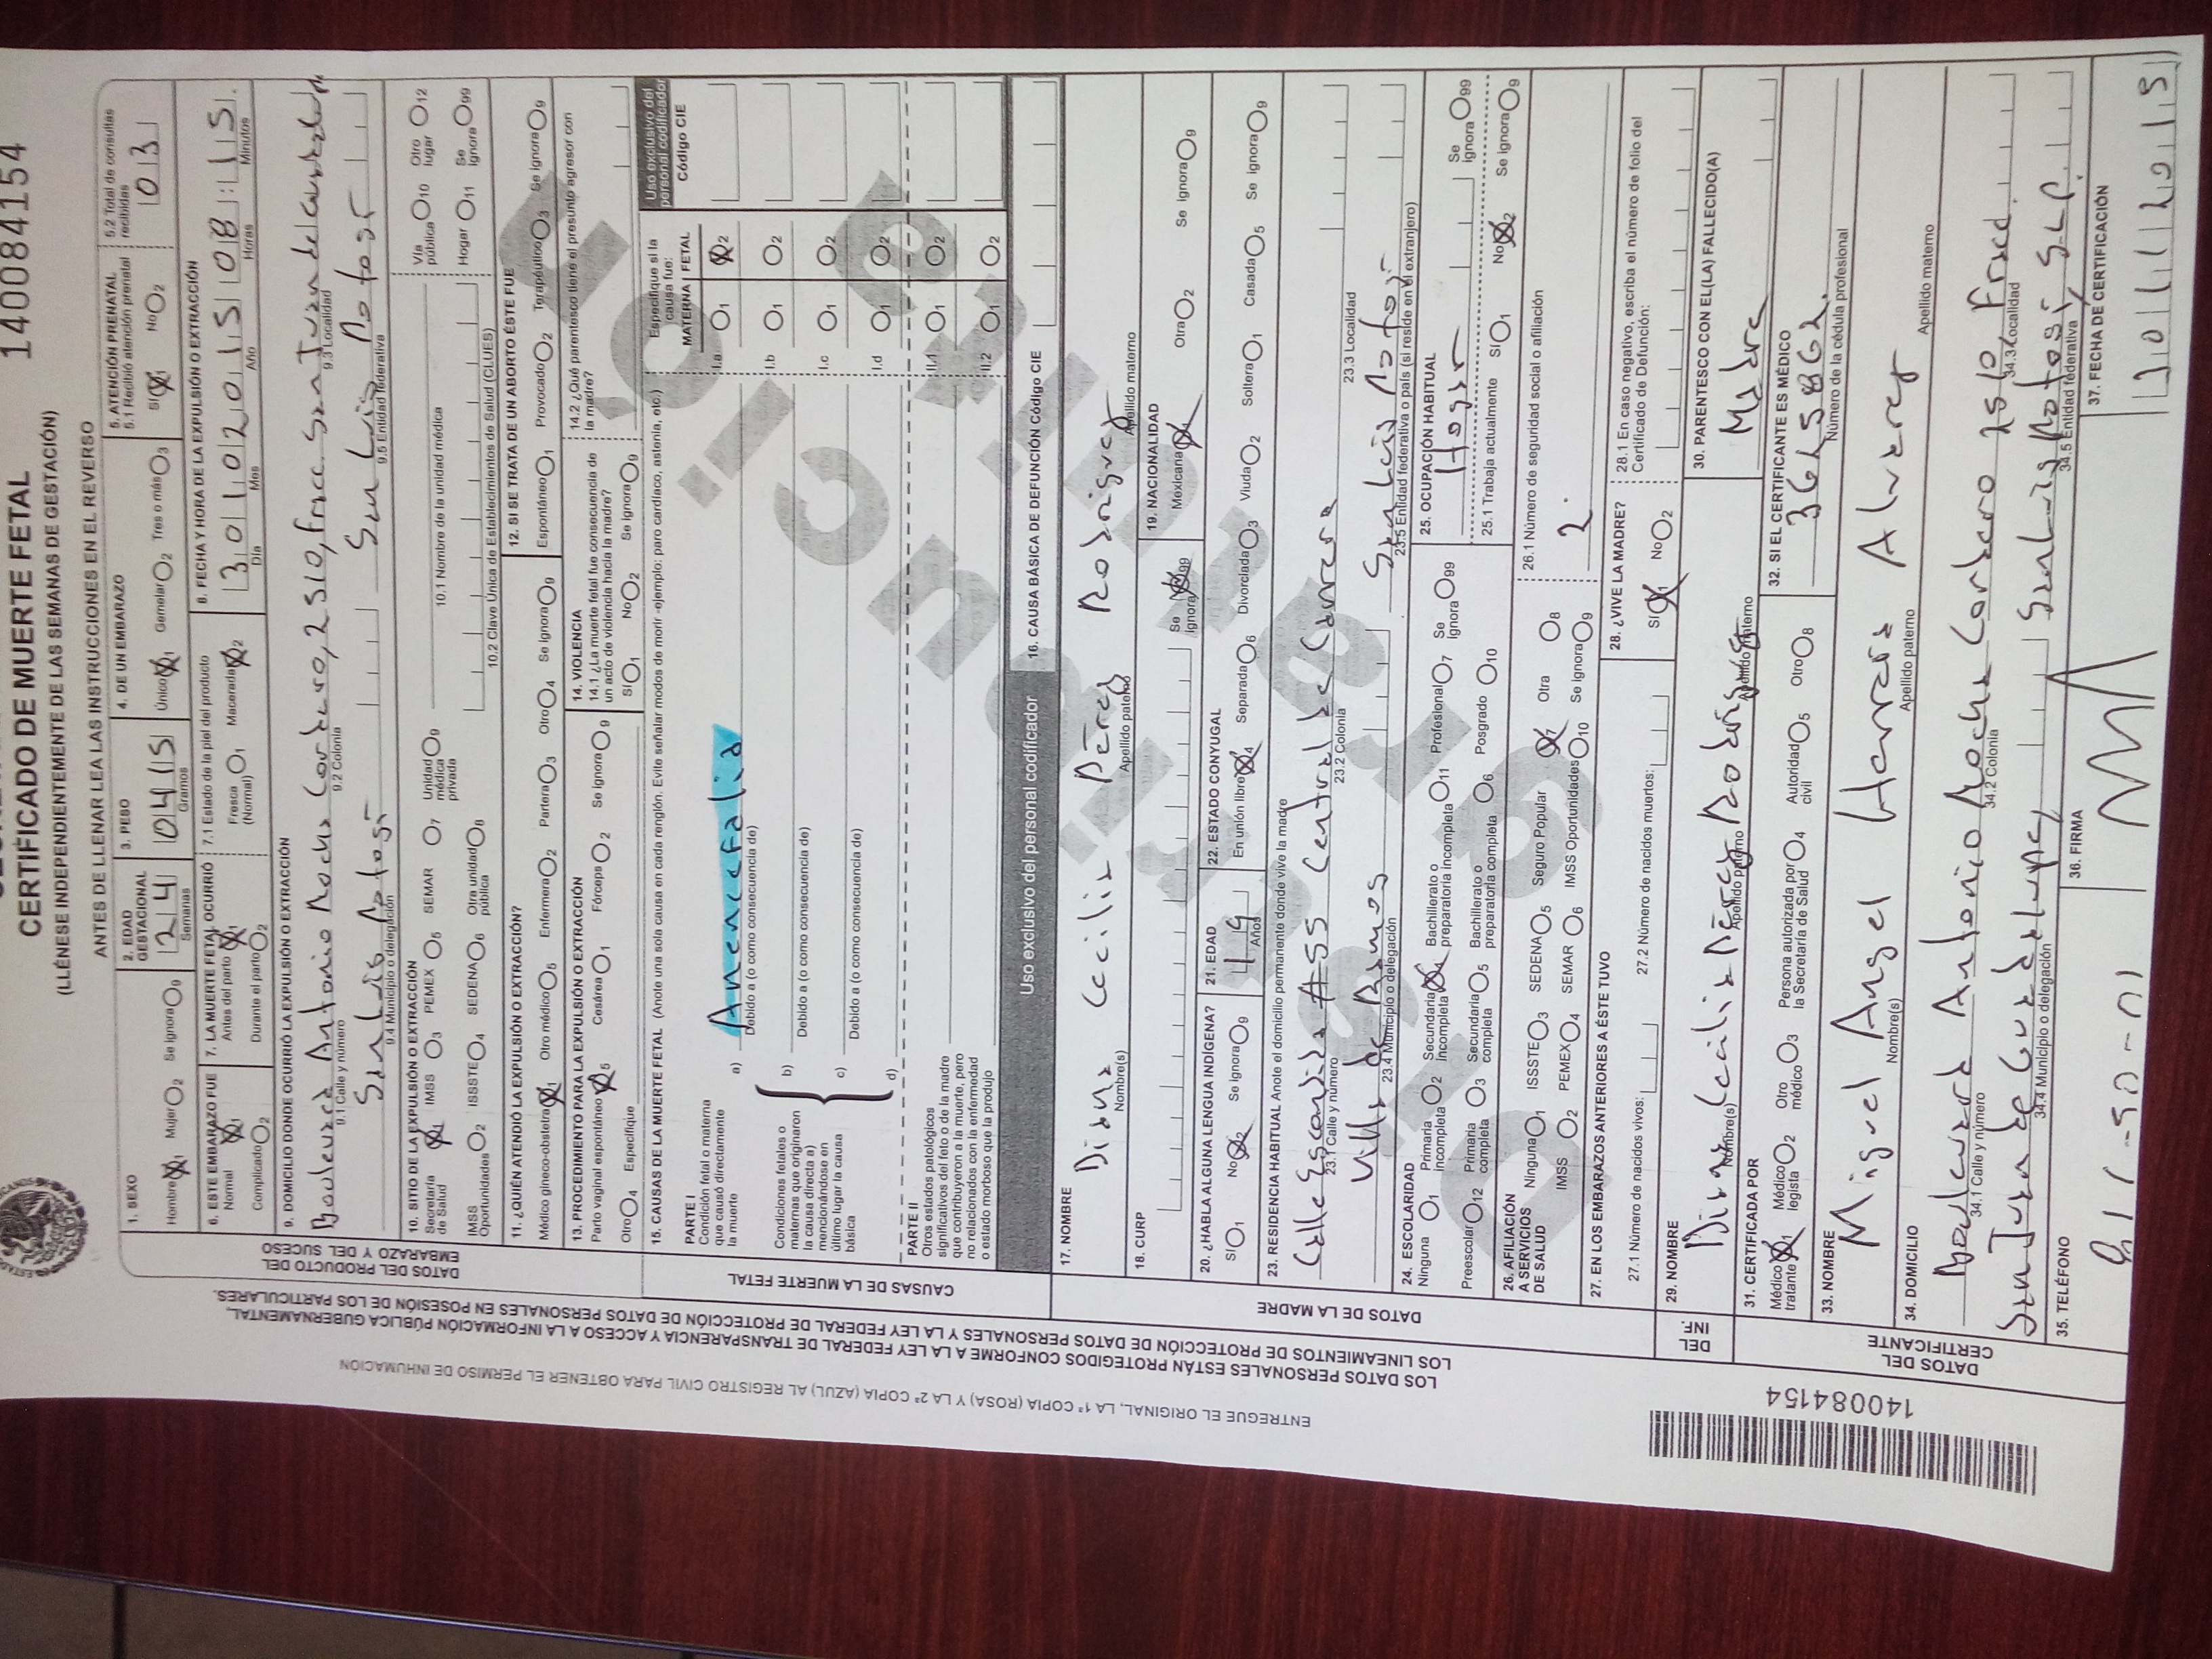 140084154
CERTIFICADO DE MUERTE FETAL
(LLÉNESE INDEPENDIENTEMENTE DE LAS SEMANAS DE GESTACIÓN)
ANTES DE LLENAR LEA LAS INSTRUCCIONES EN EL REVERSO
DATOS DEL PRODUCTO DEL EMBARAZO Y DEL SUCESO
1. SEXO
Hombre 1 Mujer 2 Se ignora 9
2. EDAD GESTACIONAL
24
Semanas
3. PESO
0415
Gramos
4. DE UN EMBARAZO
Único 1 Gemelar 2 Tres o más 3
5. ATENCIÓN PRENATAL
5.1 Recibió atención prenatal
Sí 1 No 2
5.2 Total de consultas recibidas
03
6. ESTE EMBARAZO FUE
Normal 1
Complicado 2
7. LA MUERTE FETAL OCURRIÓ
Antes del parto 1
Durante el parto 2
7.1 Estado de la piel del producto
Fresca (Normal) 1 Macerada 2
8. FECHA Y HORA DE LA EXPULSIÓN O EXTRACCIÓN
30 10 2015 08:15
Día Mes Año Horas Minutos
9. DOMICILIO DONDE OCURRIÓ LA EXPULSIÓN O EXTRACCIÓN
Boulevard Antonio Rocha Cordero, 2510, Fracc. San Juan de Guadalupe
9.1 Calle y número 9.2 Colonia 9.3 Localidad
San Luis Potosí San Luis Potosí
9.4 Municipio o delegación 9.5 Entidad federativa
10. SITIO DE LA EXPULSIÓN O EXTRACCIÓN
Secretaría de Salud 1 IMSS 3 PEMEX 5 SEMAR 7 Unidad médica privada 9
IMSS Oportunidades 2 ISSSTE 4 SEDENA 6 Otra unidad pública 8
10.1 Nombre de la unidad médica
10.2 Clave Única de Establecimientos de Salud (CLUES)
Vía pública 10 Otro lugar 12
Hogar 11 Se ignora 99
11. ¿QUIÉN ATENDIÓ LA EXPULSIÓN O EXTRACCIÓN?
Médico gineco-obstetra 1 Otro médico 5 Enfermera 2 Partera 3 Otro 4 Se ignora 9
12. SI SE TRATA DE UN ABORTO ÉSTE FUE
Espontáneo 1 Provocado 2 Terapéutico 3 Se ignora 9
13. PROCEDIMIENTO PARA LA EXPULSIÓN O EXTRACCIÓN
Parto vaginal espontáneo 5 Cesárea 1 Fórceps 2 Se ignora 9
Otro 4 Especifique
14. VIOLENCIA
14.1 ¿La muerte fetal fue consecuencia de un acto de violencia hacia la madre?
Sí 1 No 2 Se ignora 9
14.2 ¿Qué parentesco tiene el presunto agresor con la madre?
CAUSAS DE LA MUERTE FETAL
15. CAUSAS DE LA MUERTE FETAL (Anote una sola causa en cada renglón. Evite señalar modos de morir -ejemplo: paro cardíaco, astenia, etc.)
Especifique si la causa fue:
MATERNA FETAL
Uso exclusivo del personal codificador
Código CIE
PARTE I
Condición fetal o materna que causó directamente la muerte
a) Anencefalia
Debido a (o como consecuencia de)
I.a 1 2
Condiciones fetales o maternas que originaron la causa directa a) mencionándose en último lugar la causa básica
b)
Debido a (o como consecuencia de)
I.b 1 2
c)
Debido a (o como consecuencia de)
I.c 1 2
d)
I.d 1 2
PARTE II
Otros estados patológicos significativos del feto o de la madre que contribuyeron a la muerte, pero no relacionados con la enfermedad o estado morboso que la produjo
II.1 1 2
II.2 1 2
Uso exclusivo del personal codificador
16. CAUSA BÁSICA DE DEFUNCIÓN Código CIE
DATOS DE LA MADRE
17. NOMBRE
Diana Cecilia Pérez Rodríguez
Nombre(s) Apellido paterno Apellido materno
18. CURP
Se ignora 99
19. NACIONALIDAD
Mexicana 1 Otra 2 Se ignora 9
20. ¿HABLA ALGUNA LENGUA INDÍGENA?
Sí 1 No 2 Se ignora 9
21. EDAD
19
Años
22. ESTADO CONYUGAL
En unión libre 4 Separada 6 Divorciada 3 Viuda 2 Soltera 1 Casada 5 Se ignora 9
23. RESIDENCIA HABITUAL Anote el domicilio permanente donde vive la madre
23.1 Calle y número 23.2 Colonia 23.3 Localidad
Villa de Ramos San Luis Potosí
23.4 Municipio o delegación 23.5 Entidad federativa o país (si reside en el extranjero)
24. ESCOLARIDAD
Ninguna 1 Primaria incompleta 2 Secundaria incompleta 4 Bachillerato o preparatoria incompleta 11 Profesional 7 Se ignora 99
Preescolar 12 Primaria completa 3 Secundaria completa 5 Bachillerato o preparatoria completa 6 Posgrado 10
25. OCUPACIÓN HABITUAL
Hogar
Se ignora 99
25.1 Trabaja actualmente Sí 1 No 2 Se ignora 9
26. AFILIACIÓN A SERVICIOS DE SALUD
Ninguna 1 ISSSTE 3 SEDENA 5 Seguro Popular 7 Otra 8
IMSS 2 PEMEX 4 SEMAR 6 IMSS Oportunidades 10 Se ignora 9
26.1 Número de seguridad social o afiliación
2.
27. EN LOS EMBARAZOS ANTERIORES A ÉSTE TUVO
27.1 Número de nacidos vivos: 27.2 Número de nacidos muertos:
28. ¿VIVE LA MADRE?
Sí 1 No 2
28.1 En caso negativo, escriba el número de folio del Certificado de Defunción:
DEL INF.
29. NOMBRE
Diana Cecilia Pérez Rodríguez
Nombre(s) Apellido paterno Apellido materno
30. PARENTESCO CON EL(LA) FALLECIDO(A)
Madre
DATOS DEL CERTIFICANTE
31. CERTIFICADA POR
Médico tratante 1 Médico legista 2 Otro médico 3 Persona autorizada por la Secretaría de Salud 4 Autoridad civil 5 Otro 8
32. SI EL CERTIFICANTE ES MÉDICO
Número de la cédula profesional
33. NOMBRE
Miguel Angel Herrera Alvarez
Nombre(s) Apellido paterno Apellido materno
34. DOMICILIO
Boulevard Antonio Rocha Cordero 2510 Fracc.
34.1 Calle y número 34.2 Colonia 34.3 Localidad
San Juan de Guadalupe, San Luis Potosí, S.L.P.
34.4 Municipio o delegación 34.5 Entidad federativa
35. TELÉFONO
36. FIRMA
37. FECHA DE CERTIFICACIÓN
LOS DATOS PERSONALES ESTÁN PROTEGIDOS CONFORME A LA LEY FEDERAL DE TRANSPARENCIA Y ACCESO A LA INFORMACIÓN PÚBLICA GUBERNAMENTAL,
LOS LINEAMIENTOS DE PROTECCIÓN DE DATOS PERSONALES Y LA LEY FEDERAL DE PROTECCIÓN DE DATOS PERSONALES EN POSESIÓN DE LOS PARTICULARES.
ENTREGUE EL ORIGINAL, LA 1ª COPIA (ROSA) Y LA 2ª COPIA (AZUL) AL REGISTRO CIVIL PARA OBTENER EL PERMISO DE INHUMACIÓN
140084154
Distribución gratuita